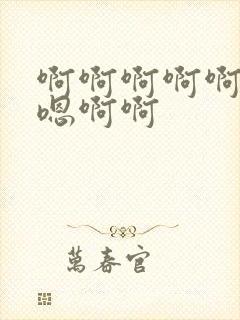 啊啊啊啊啊
嗯啊啊
萬春官